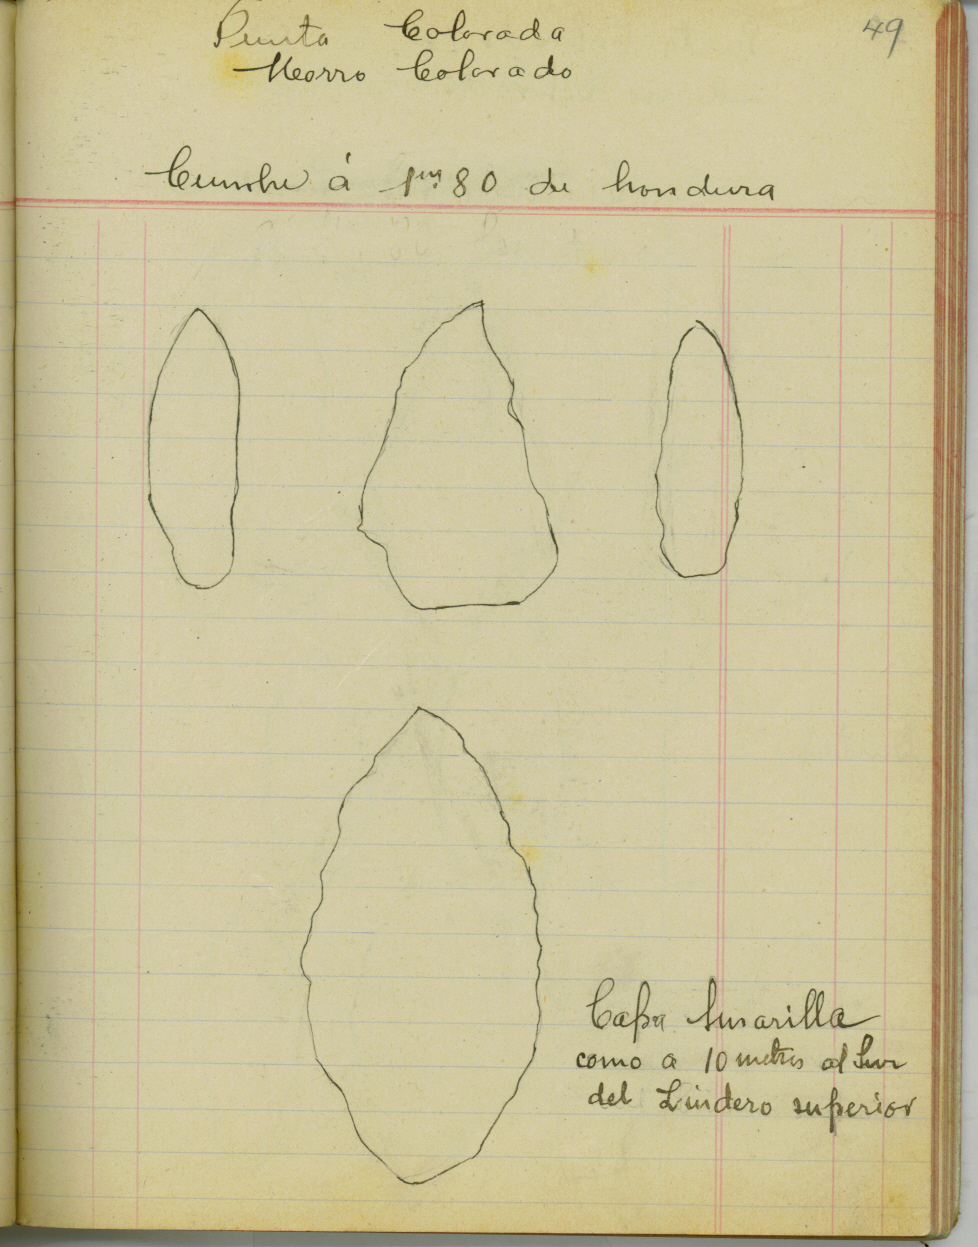 49
Punta Colorada
Morro Colorado
Cumbre á 1m80 de hondura
Capa Amarilla
como a 10 metros al Sur
del Lindero superior